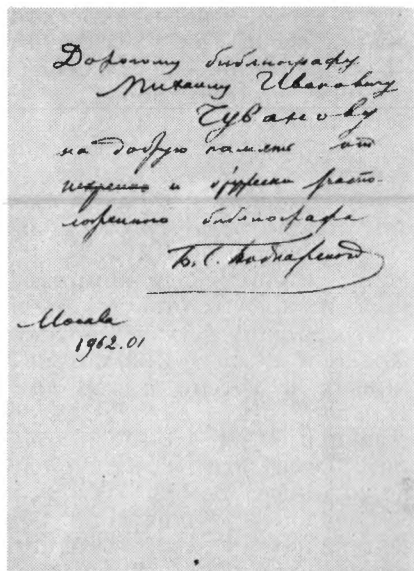 Дорогому библиографу
Михаилу Ивановичу
Чуванову
на добрую память от
искренно и дружески распо-
ложенного библиографа
Б. С. Боднарского
Москва
1962.01